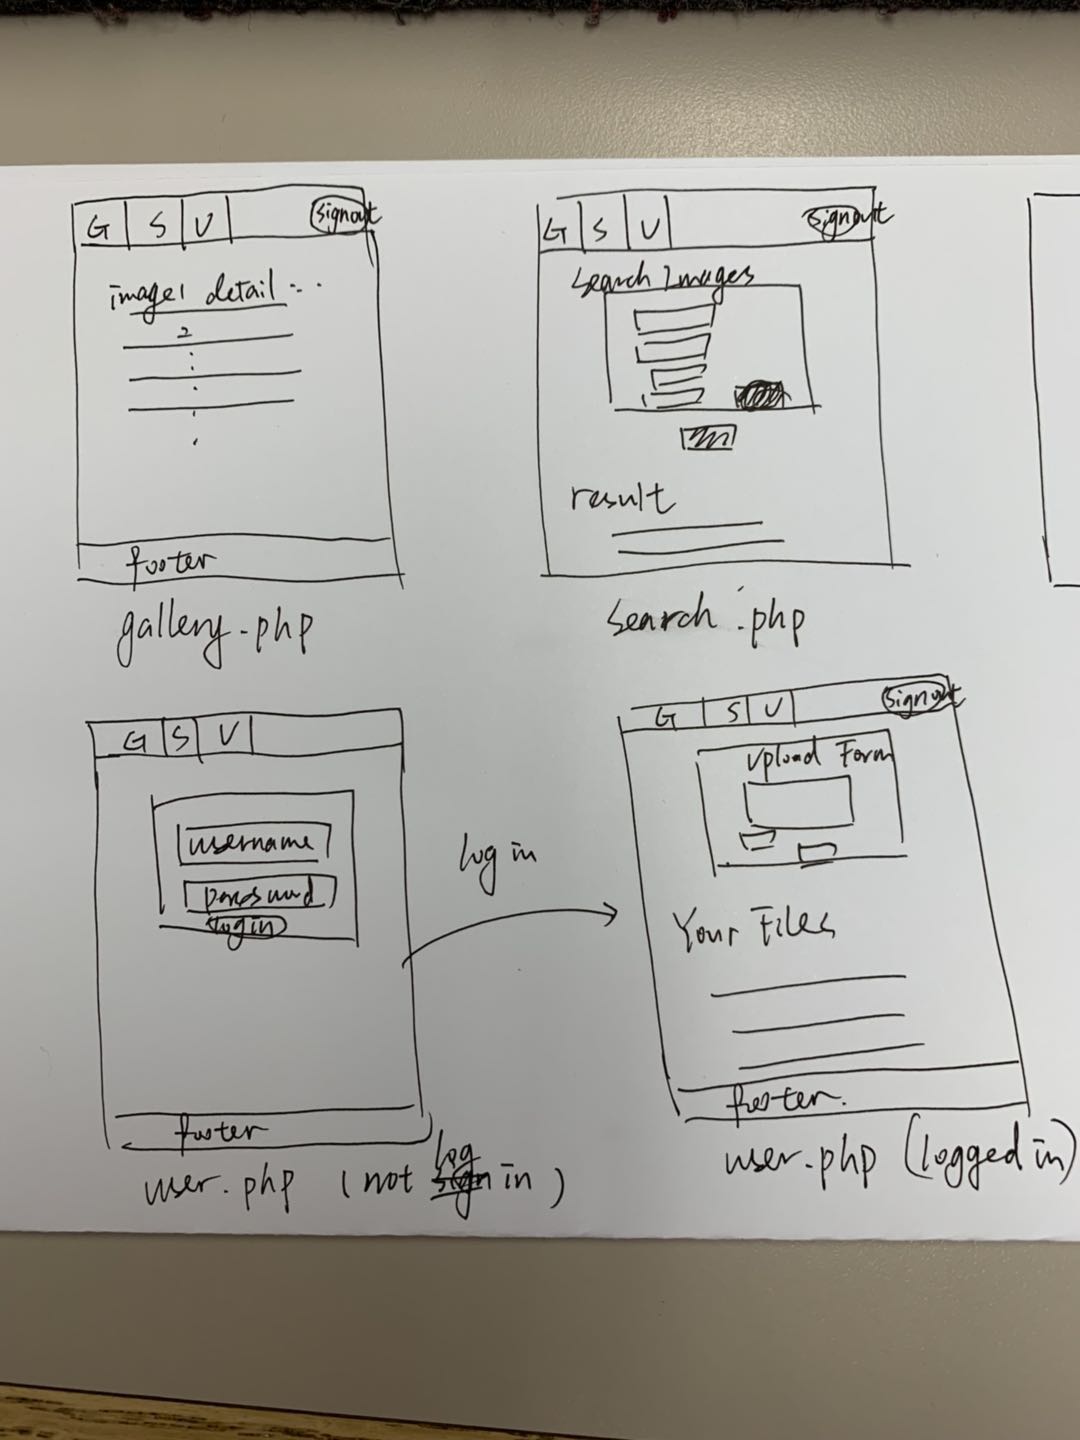 G S U signout
image1 detail ...
2
footer
gallery.php
G S U signout
Search Images
result
search.php
G S U
username
password
login
footer
user.php (not log in)
log in
G S U signout
Upload Form
Your Files
footer.
user.php (logged in)